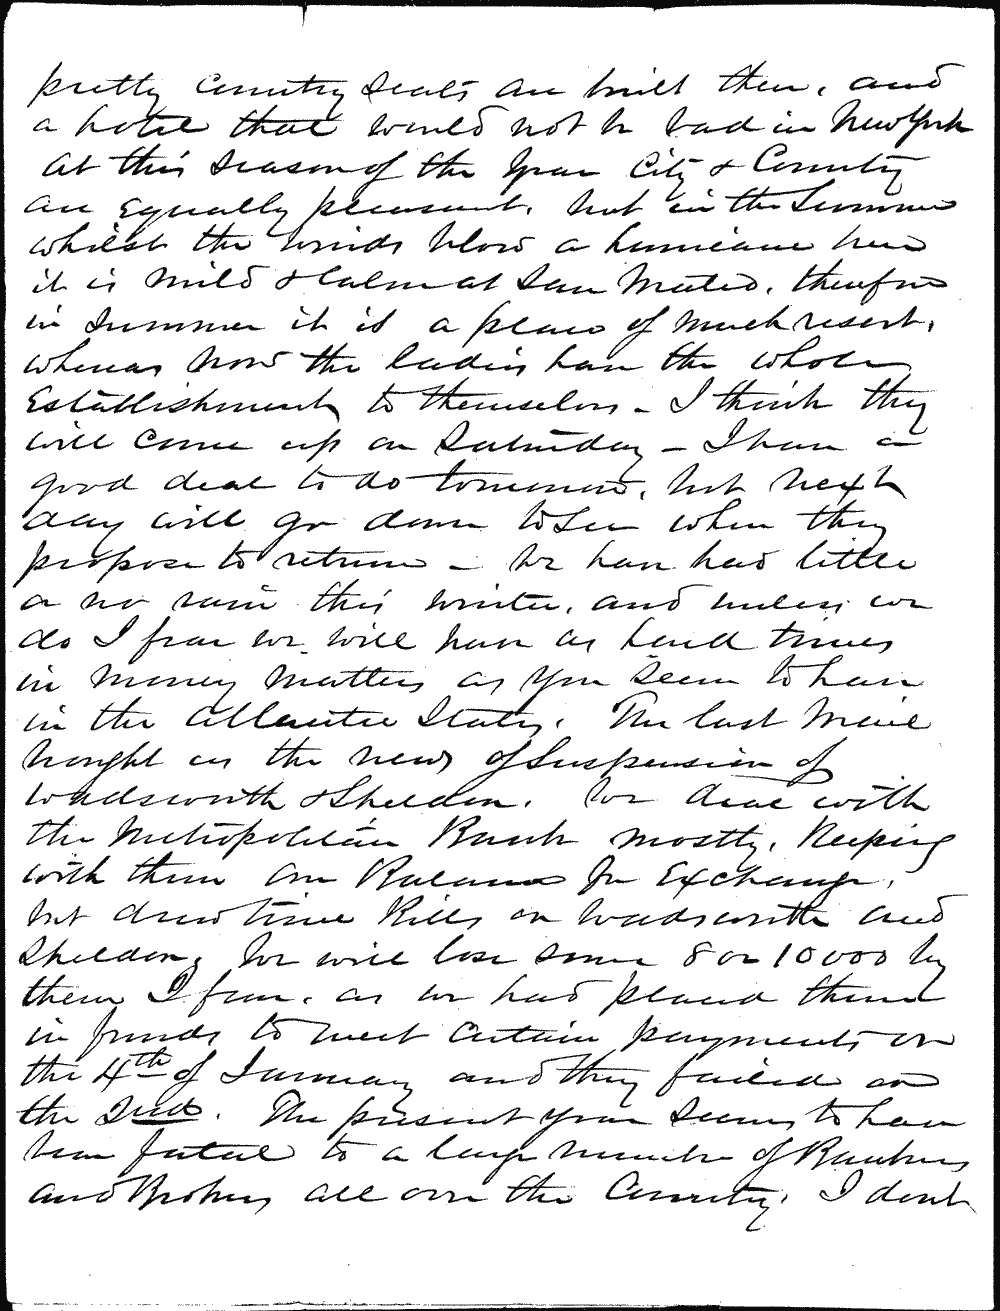 pretty Country Seats are built there, and
a hotel that would not be bad in New York
at this season of the Year City & Country
are Equally pleasant, but in the Summer
whilst the winds blow a hurricane here
it is mild & Calm at San Mateo, therefore
in Summer it is a place of much resort,
whereas now the ladies have the whole
Establishment to themselves - I think they
will come up on Saturday - I have a
good deal to do tomorrow, but next
day will go down to See when they
propose to return - We have had little
or no rain this winter, and unless we
do I fear we will have as hard times
in money matters as you seem to have
in the Atlantic States. The last Mail
brought us the news of Suspension of
Wadsworth & Sheldon. We deal with
the Metropolitan Bank mostly, Keeping
with them our Balance for Exchange,
but drew time Bills on Wadsworth and
Sheldon, We will lose some 8 or 10000 by
them I fear, as we had placed them
in funds to meet certain payments on
the 4th of January and they failed on
the 2nd. The present year seems to have
been fatal to a large number of Bankers
and Brokers all over the Country. I dont